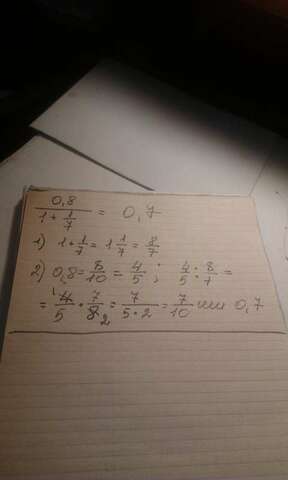 0,8 / (1 + 1/7) = 0,7
1) 1 + 1/7 = 1 1/7 = 8/7
2) 0,8 = 8/10 = 4/5 ; 4/5 : 8/7 =
= 4/5 · 7/8 = 7/(5·2) = 7/10 или 0,7